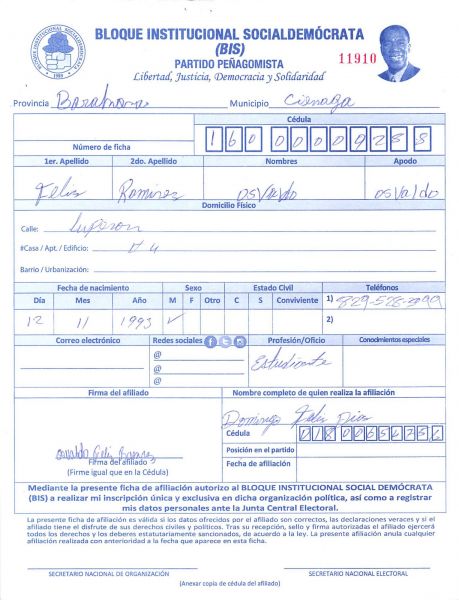 BLOQUE INSTITUCIONAL SOCIALDEMÓCRATA
(BIS)
PARTIDO PEÑAGOMISTA
Libertad, Justicia, Democracia y Solidaridad
11910
BLOQUE INSTITUCIONAL SOCIALDEMOCRATA
1989
Provincia Barahona Municipio Cienaga
Cédula
Número de ficha
1er. Apellido 2do. Apellido Nombres Apodo
Feliz Ramirez osvaldo osvaldo
Domicilio Físico
Calle: Luperon
#Casa / Apt. / Edificio:
Barrio / Urbanización:
Fecha de nacimiento Sexo Estado Civil Teléfonos
Día Mes Año M F Otro C S Conviviente 1)
12 11 1993 ✓ 2)
Correo electrónico Redes sociales Profesión/Oficio Conocimientos especiales
@ Estudiante
@
@
Firma del afiliado Nombre completo de quien realiza la afiliación
Domingo Feliz
Cédula
osvaldo Feliz Ramirez
Firma del afiliado Posición en el partido
(Firme igual que en la Cédula) Fecha de afiliación
Mediante la presente ficha de afiliación autorizo al BLOQUE INSTITUCIONAL SOCIAL DEMÓCRATA
(BIS) a realizar mi inscripción única y exclusiva en dicha organización política, así como a registrar
mis datos personales ante la Junta Central Electoral.
La presente ficha de afiliación es válida si los datos ofrecidos por el afiliado son correctos, las declaraciones veraces y si el
afiliado tiene el disfrute de sus derechos civiles y políticos. Tras su recepción, sello y firma autorizados el afiliado ejercerá
todos los derechos y los deberes estatutariamente sancionados, de acuerdo a la ley. La presente afiliación anula cualquier
afiliación realizada con anterioridad a la fecha que aparece en esta ficha.
SECRETARIO NACIONAL DE ORGANIZACIÓN SECRETARIO NACIONAL ELECTORAL
(Anexar copia de cédula del afiliado)